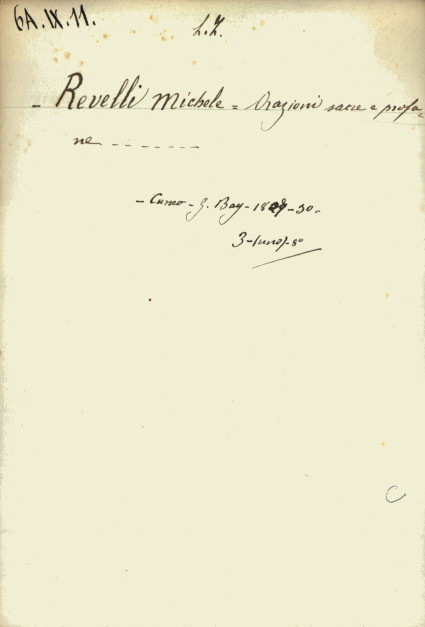 6A.IX.11.
L.Z.
- Revelli Michele = Orazioni sacre e profa-
ne - - - - - - -
- Cuneo - G. Bay - 18 - 30 -
3 - 8°
C